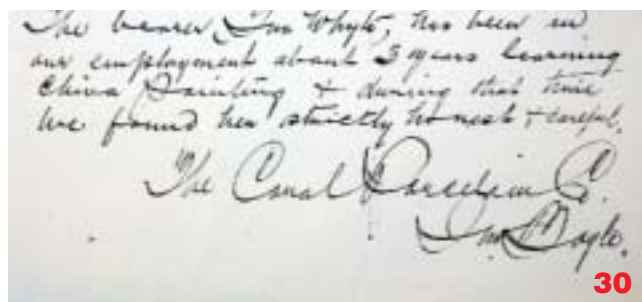 The bearer, Whyte, has been in
our employment about 3 years learning
China Painting & during that time
we found her strictly honest & careful.
The Canal Porcelain Co.
30